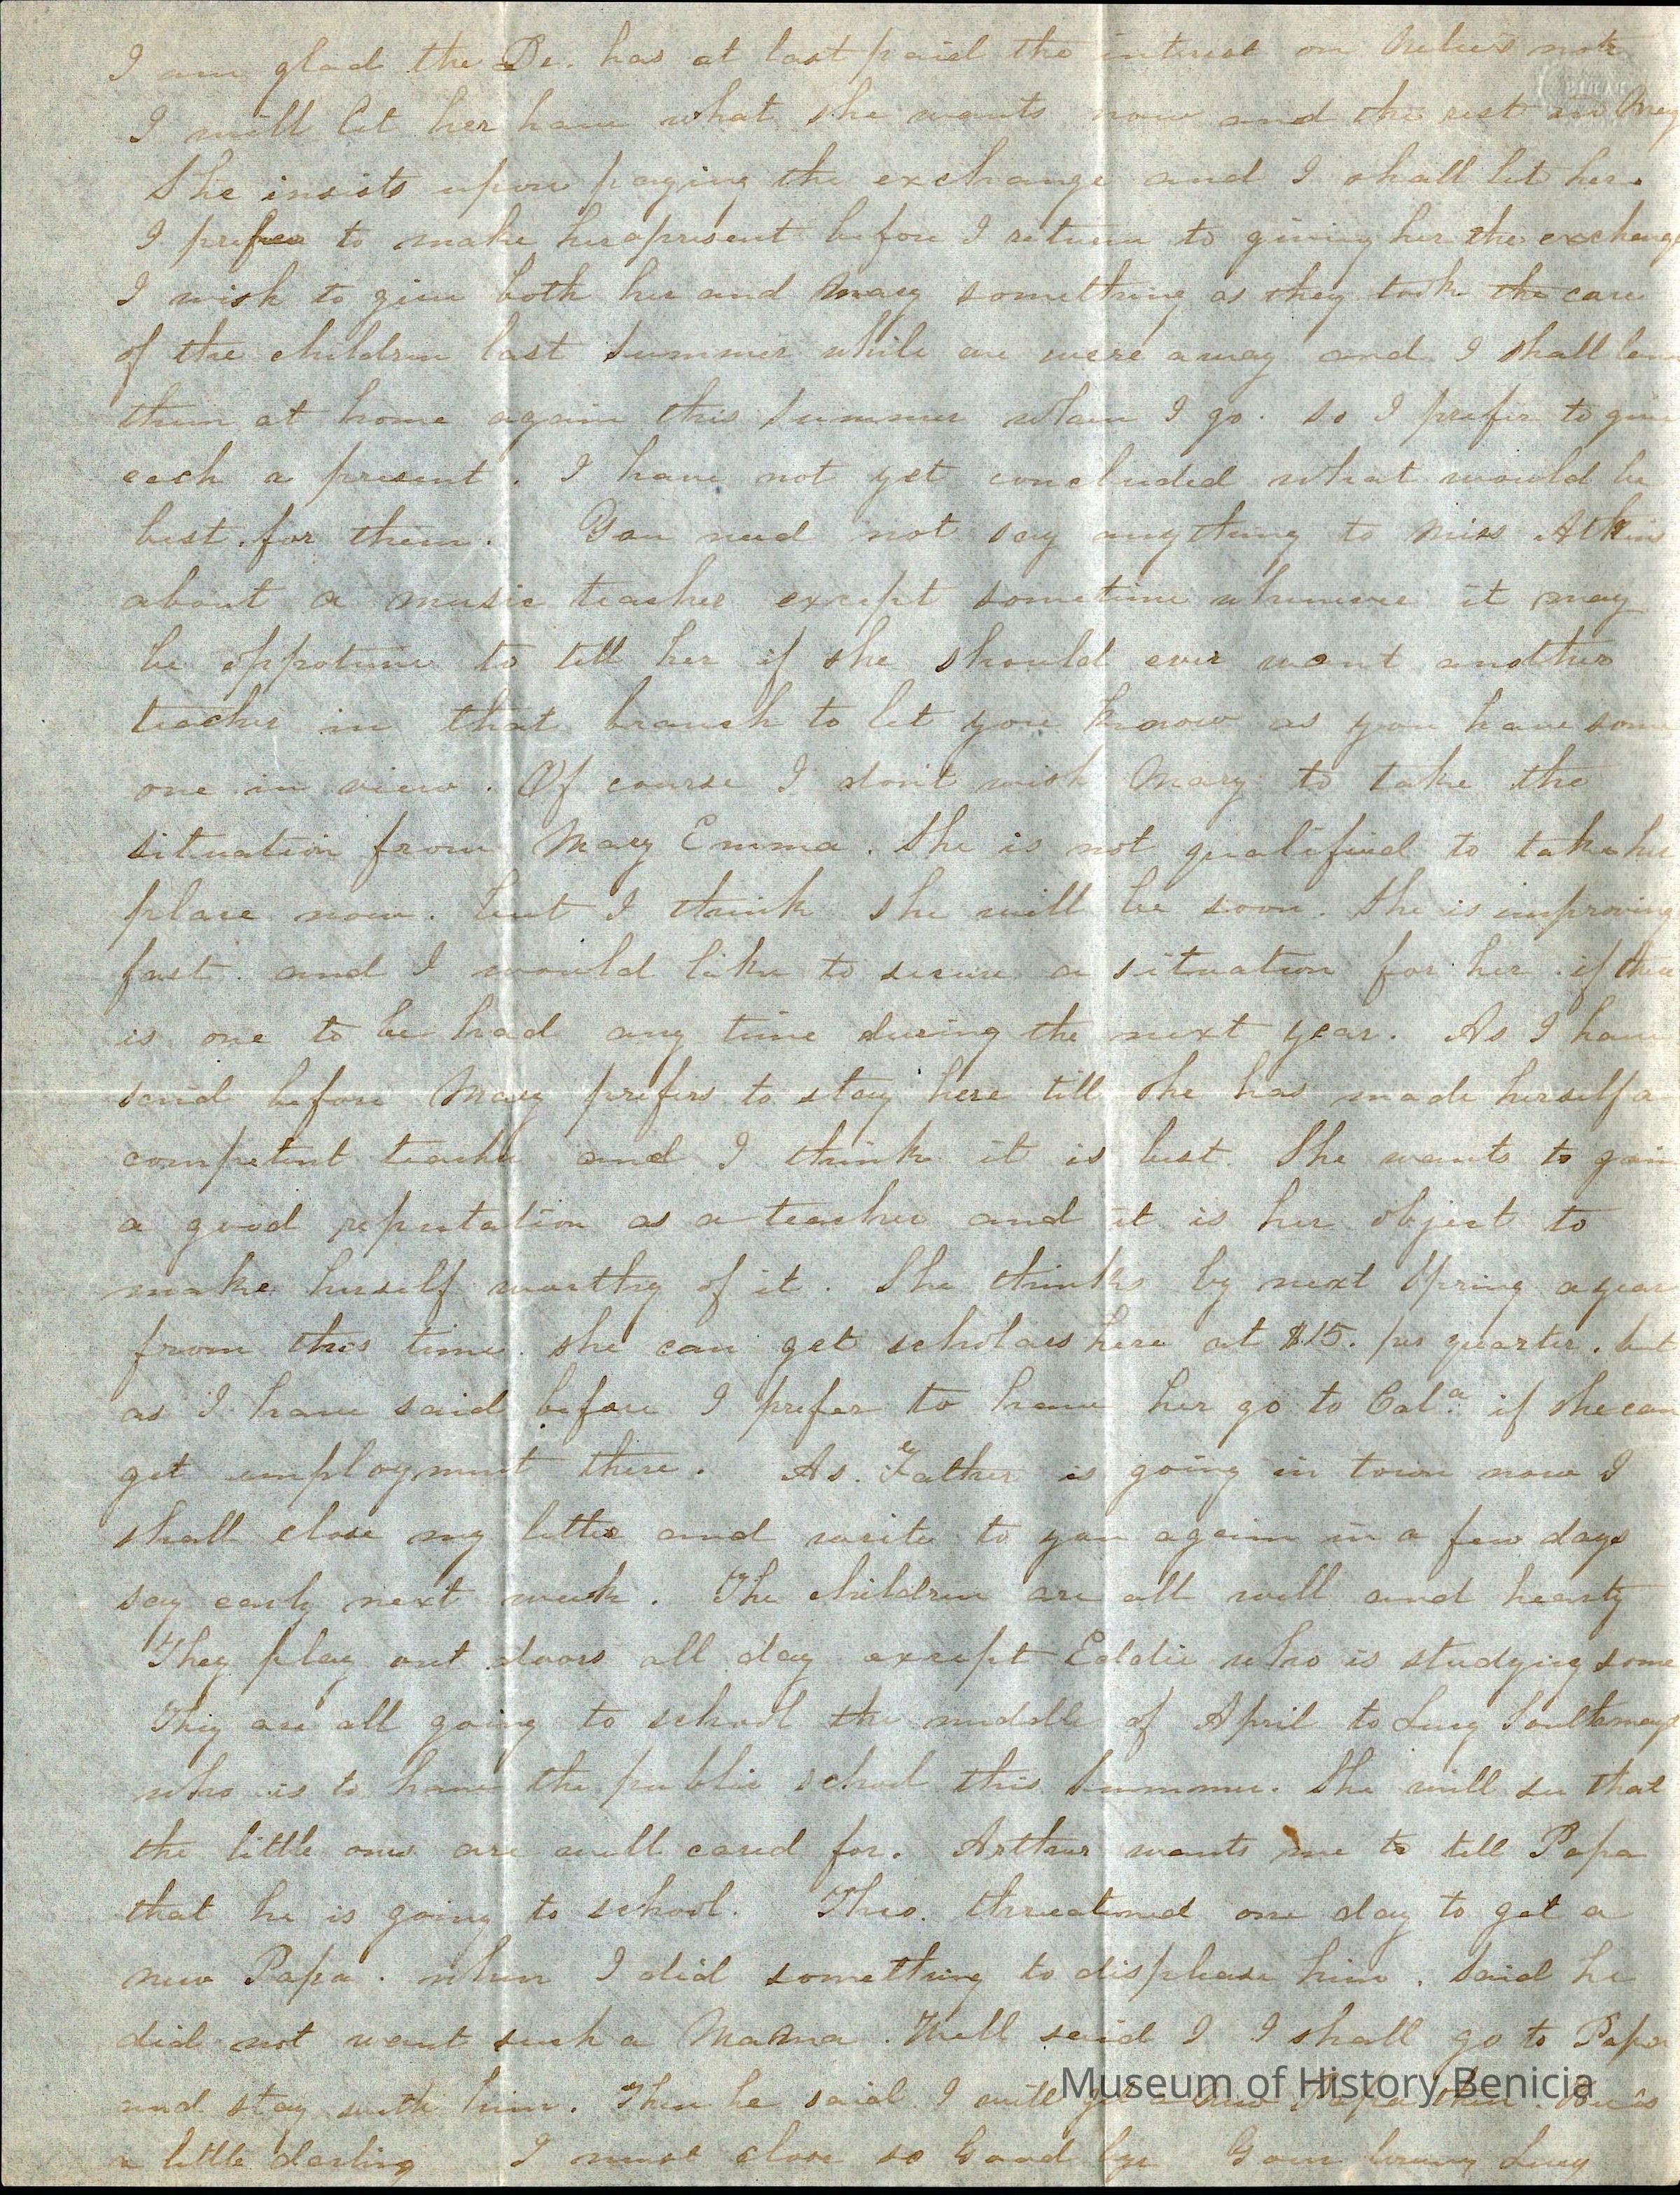 I am glad the Dr. has at last paid the interest on note
I will let her have what she wants now and the rest in May
She insists upon paying the exchange and I shall let her.
I prefer to make her a present before I return to giving her the exchange
I wish to give both her and Mary something as they took the care
of the children last summer while we were away and I shall leave
them at home again this summer when I go. so I prefer to give
each a present. I have not yet concluded what would be
best for them. You need not say anything to Miss Atkins
about a music teacher except sometime whenever it may
be oppotune to tell her if she should ever want another
teacher in that branch to let you know as you have some
one in view. Of course I don't wish Mary to take the
situation from Mary Emma. She is not qualified to take her
place now. but I think she will be soon. She is improving
fast. and I would like to secure a situation for her. if there
is one to be had any time during the next year. As I have
said before Mary prefers to stay here till she has made herself a
competent teacher and I think it is best. She wants to gain
a good reputation as a teacher and it is her object to
make herself worthy of it. She thinks by next Spring a year
from this time. she can get scholars here at $15. per quarter. but
as I have said before I prefer to have her go to Cal.a if she can
get employment there. As Father is going in town now I
shall close my letter and write to you again in a few days
say early next week. The children are all well and hearty
They play out doors all day except Eddie who is studying some
They are all going to school the middle of April to Lucy
who is to have the public school this summer. She will see that
the little ones are well cared for. Arthur wants me to tell Papa
that he is going to school. Theo. threatened one day to get a
new Papa. when I did something to displease him. Said he
did not want such a Mama. Well said I I shall go to Papa
and stay with him. Then he said I will get a new Papa then. He is
a little darling I must close so Good bye Your loving Lucy
Museum of History Benicia